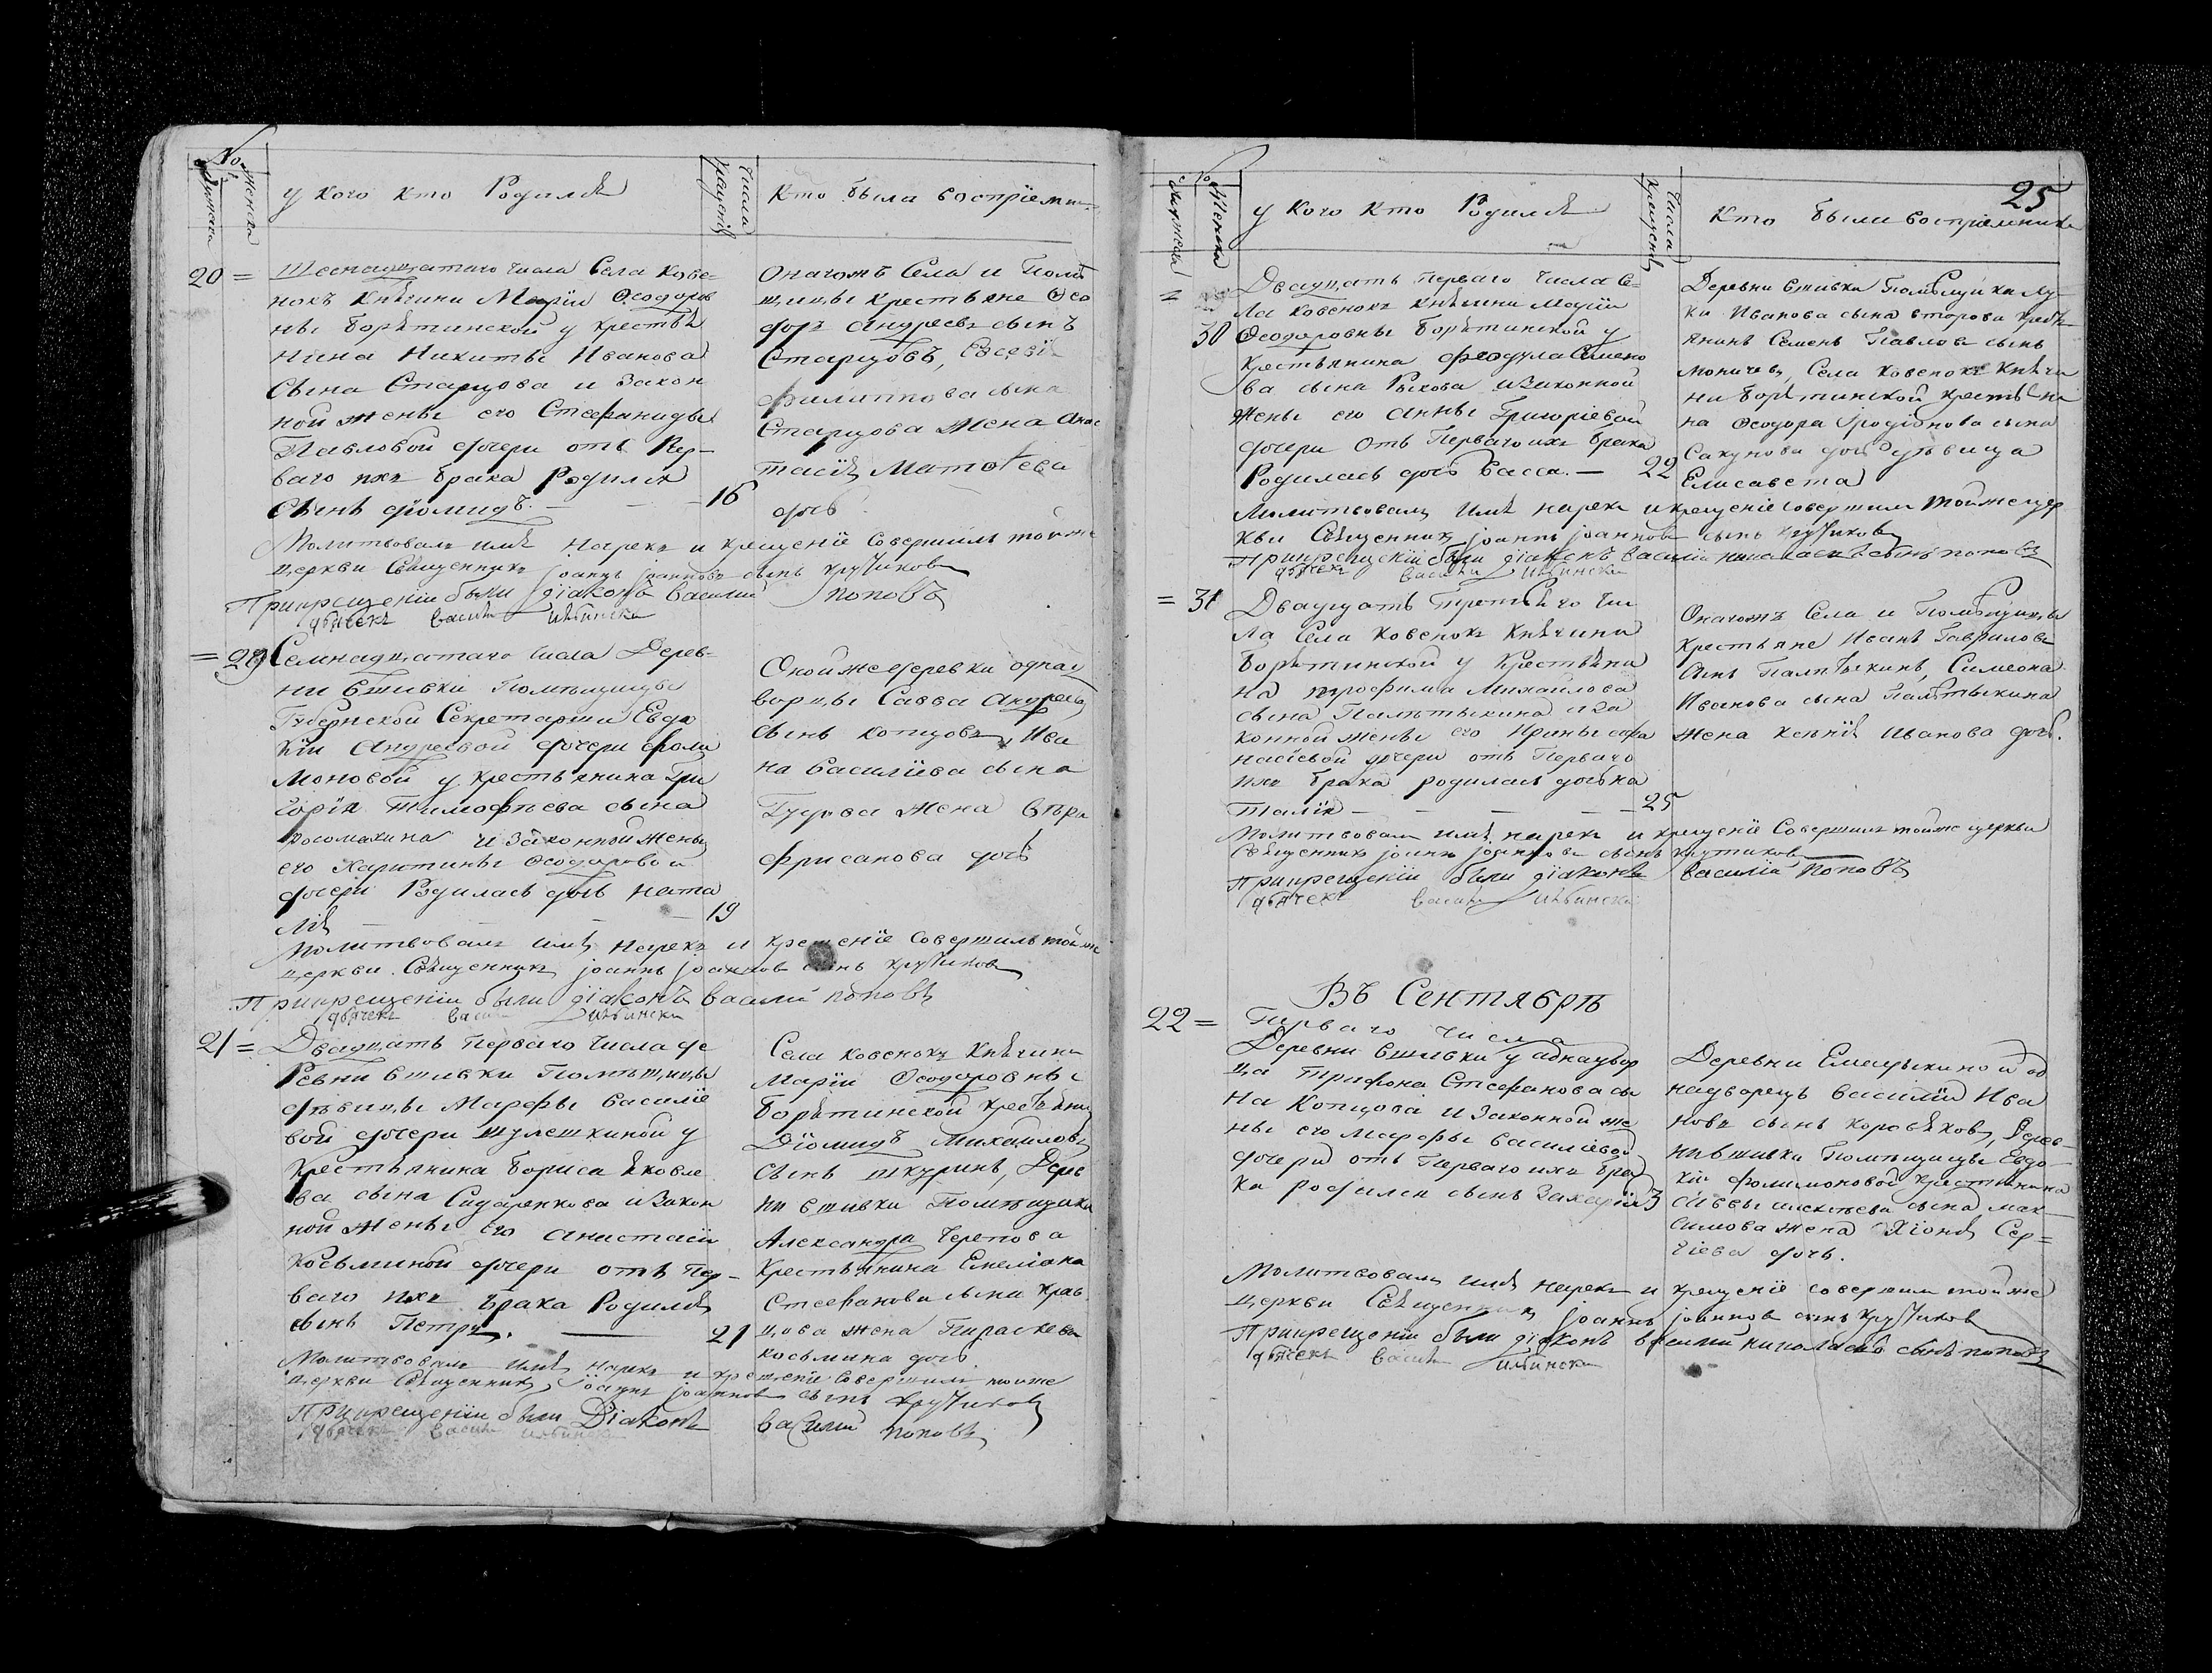 №
мужеска
женска
У кого кто Родился
Числа
крещенія
Кто была воспріемни
20 =
Шеснадцатаго числа Села Кове-
нокъ Княгини Маріи Ѳеодоров
ны Борятинской у крестья
нина Никиты Иванова
Сына Старцова и Закон
ной жены его Стефаниды
Павловой дочери отъ Пер-
ваго ихъ брака Родился
Сынъ Діомидъ. — — — 16
Оначожъ Села и Помѣ
щицы крестьяне Ѳео
доръ Андреевъ сынъ
Старцовъ,
Филиппова сына
Старцова Жена Анас
тасія Матѳеева
дочь
Молитвовалъ имя Нарекъ и крещеніе Совершилъ тойже
церкви Священникъ Іоаннъ Іоанновъ сынъ Крутиковъ
При крещеніи были діаконъ Василий Поповъ
дьячекъ Василій
= 29
Семнадцатаго числа Дерев-
ни Вшивки Помѣщицы
Губернской Секретарши Евдо
кіи Андреевой дочери Фоли
моновой у крестьянина Гри
горія Тимофѣева сына
Росомахина и Законной жены
его Харитины Ѳеодоровой
дочери Родилась дочь Ната
лія — — — — 19
Оной же деревни однод
ворцы Савва Андреевъ
сынъ Копцовъ, Ива
на Василіева сына
Гудова жена Вѣра
Фрисанова дочь
Молитвовалъ имя Нарекъ и крещеніе Совершилъ тойже
церкви Священникъ Іоаннъ Іоанновъ сынъ Крутиковъ
При крещеніи были діаконъ Василий Поповъ
дьячекъ Василій
21 =
Двадцать перваго числа де
Ревни Вшивки Помѣщицы
дѣвицы Марфы Василіе
вой дочери Шулешкиной у
Крестьянина Бориса Яковле
ва сына Сидаренкова и Закон
ной жены Его Анастасіи
Косьминой дочери отъ Пер-
ваго ихъ брака Родился
сынъ Петръ. — 21
Села Ковенокъ Княгини
Маріи Ѳеодоровны
Борятинской крестьянинъ
Діомидъ Михайловъ
Сынъ Шкуринъ, Дерев
ни Вшивки Помѣщика
Александра Черепова
Крестьянина Емеліана
Стефанова сына Крав
цова жена Параскева
Косьмина дочь.
Молитвовалъ имя Нарекъ и крещеніе Совершилъ тойже
церкви Священникъ Іоаннъ Іоанновъ сынъ Крутиковъ
При крещеніи были Діаконъ Василий Поповъ
дьячекъ Василій
25
№
мужеска
женска
У кого кто Родился
Числа
крещенія
Кто были воспріемники
=
30
Двадцать перваго числа Се-
ла Ковенокъ Княгини Маріи
Ѳеодоровны Борятинской у
крестьянина Феодула Симено
ва сына Рыкова и Законной
Жены его Анны Григоріевой
дочери Отъ Перваго ихъ брака
Родилась дочь Васса. — 22
Деревни Вшивки Помѣщика Лу-
ки Иванова сына втораго крѣсть-
янинъ Семенъ Павловъ сынъ
Моничевъ, Села Ковенокъ Княги
ни Борятинской крестьяни
на Ѳеодора Иродіонова сына
Сакунова дочь дѣвица
Елисавета
Молитвовалъ имя нарекъ и крещеніе совершилъ тойже цер
кви Священникъ Іоаннъ Іоанновъ сынъ Крутиковъ
При крещеніи были діаконъ Василій Николаевъ сынъ Поповъ
дьячекъ Василій
= 31
Двадцать третьяго чис
ла Села Ковенокъ Княгини
Борятинской у Крестьяни
на Трофима Михайлова
сына Палятыкина и За
конной жены его Ирины Афа
насіевой дочери отъ Перваго
ихъ брака родилась дочь На
талія — — — — 25
Оначожъ Села и Помѣщицы
крестьяне Иванъ Гавриловъ
сынъ Палятыкинъ, Симеона
Иванова сына Палятыкина
жена Ксенія Иванова дочь.
Молитвовалъ имя нарекъ и крещеніе Совершилъ тойже церкви
Священникъ Іоаннъ Іоанновъ сынъ Крутиковъ
При крещеніи были діаконъ Василій Поповъ
дьячекъ Василій
Въ Сентябрѣ
22 =
Перваго Числа
Деревни Вшивки у аднадвор
ца Трифона Стефанова сы
на Копцова и Законной же
ны его Марфы Василіевой
дочери отъ Перваго ихъ бра
ка родился сынъ Захарій 3
Деревни Емадыкиной од
надворецъ Василій Ива
новъ сынъ Коровяковъ, Дерев-
ни Вшивки Помѣщицы Евдо
кіи Фолимоновой крестьянина
Саввы Алексѣева сына Мак
симова жена Хіонія Сер-
гіева дочь.
Молитвовалъ имя Нарекъ и крещеніе совершилъ тойже
церкви Священникъ Іоаннъ Іоанновъ сынъ Крутиковъ
При крещеніи были діаконъ Василий Николаевъ сынъ Поповъ
дьячекъ Василій